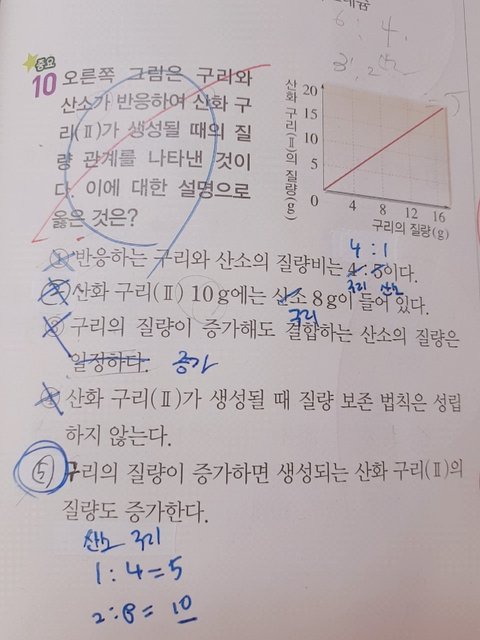 6 : 4
3 : 2
중요
10 오른쪽 그림은 구리와
산소가 반응하여 산화 구
리(Ⅱ)가 생성될 때의 질
량 관계를 나타낸 것이
다. 이에 대한 설명으로
옳은 것은?
산화 구리(Ⅱ)의 질량(g)
20
15
10
5
0
4 8 12 16
구리의 질량(g)
4 : 1
① 반응하는 구리와 산소의 질량비는 4 : 5이다.
구리 산소
② 산화 구리(Ⅱ) 10 g에는 산소 8 g이 들어 있다.
구리
③ 구리의 질량이 증가해도 결합하는 산소의 질량은
일정하다. 증가
④ 산화 구리(Ⅱ)가 생성될 때 질량 보존 법칙은 성립
하지 않는다.
⑤ 구리의 질량이 증가하면 생성되는 산화 구리(Ⅱ)의
질량도 증가한다.
산소 구리
1 : 4 = 5
2 : 8 = 10